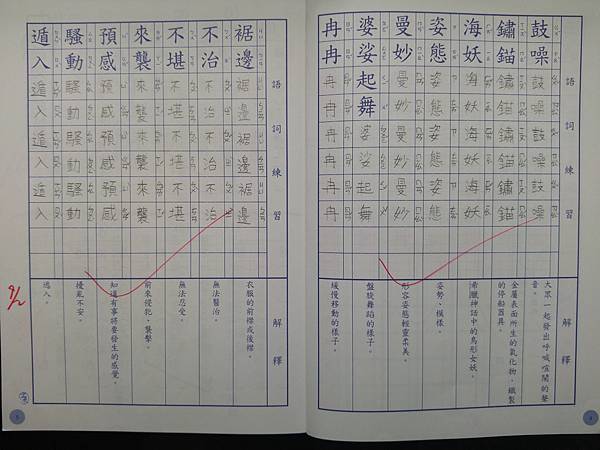 語詞練習 解釋
鼓噪鼓噪鼓噪鼓噪
大眾一起發出呼喊喧鬧的聲
音。
鏽錨鏽錨鏽錨鏽錨
金屬表面所生的氧化物。鐵製
的停船器具。
海妖海妖海妖海妖
希臘神話中的鳥形女妖。
姿態姿態姿態姿態
姿勢、模樣。
曼妙曼妙曼妙曼妙
形容姿態輕靈柔美。
婆娑起舞婆娑起舞
盤旋舞蹈的樣子。
冉冉冉冉冉冉冉冉
緩慢移動的樣子。
語詞練習 解釋
裾邊裾邊裾邊裾邊
衣服的前襟或後襟。
不治不治不治不治
無法醫治。
不堪不堪不堪不堪
無法忍受。
來襲來襲來襲來襲
前來侵犯、襲擊。
預感預感預感預感
知道有事將要發生的感覺。
騷動騷動騷動騷動
擾亂不安。
遁入遁入遁入遁入
逃入。
9/2